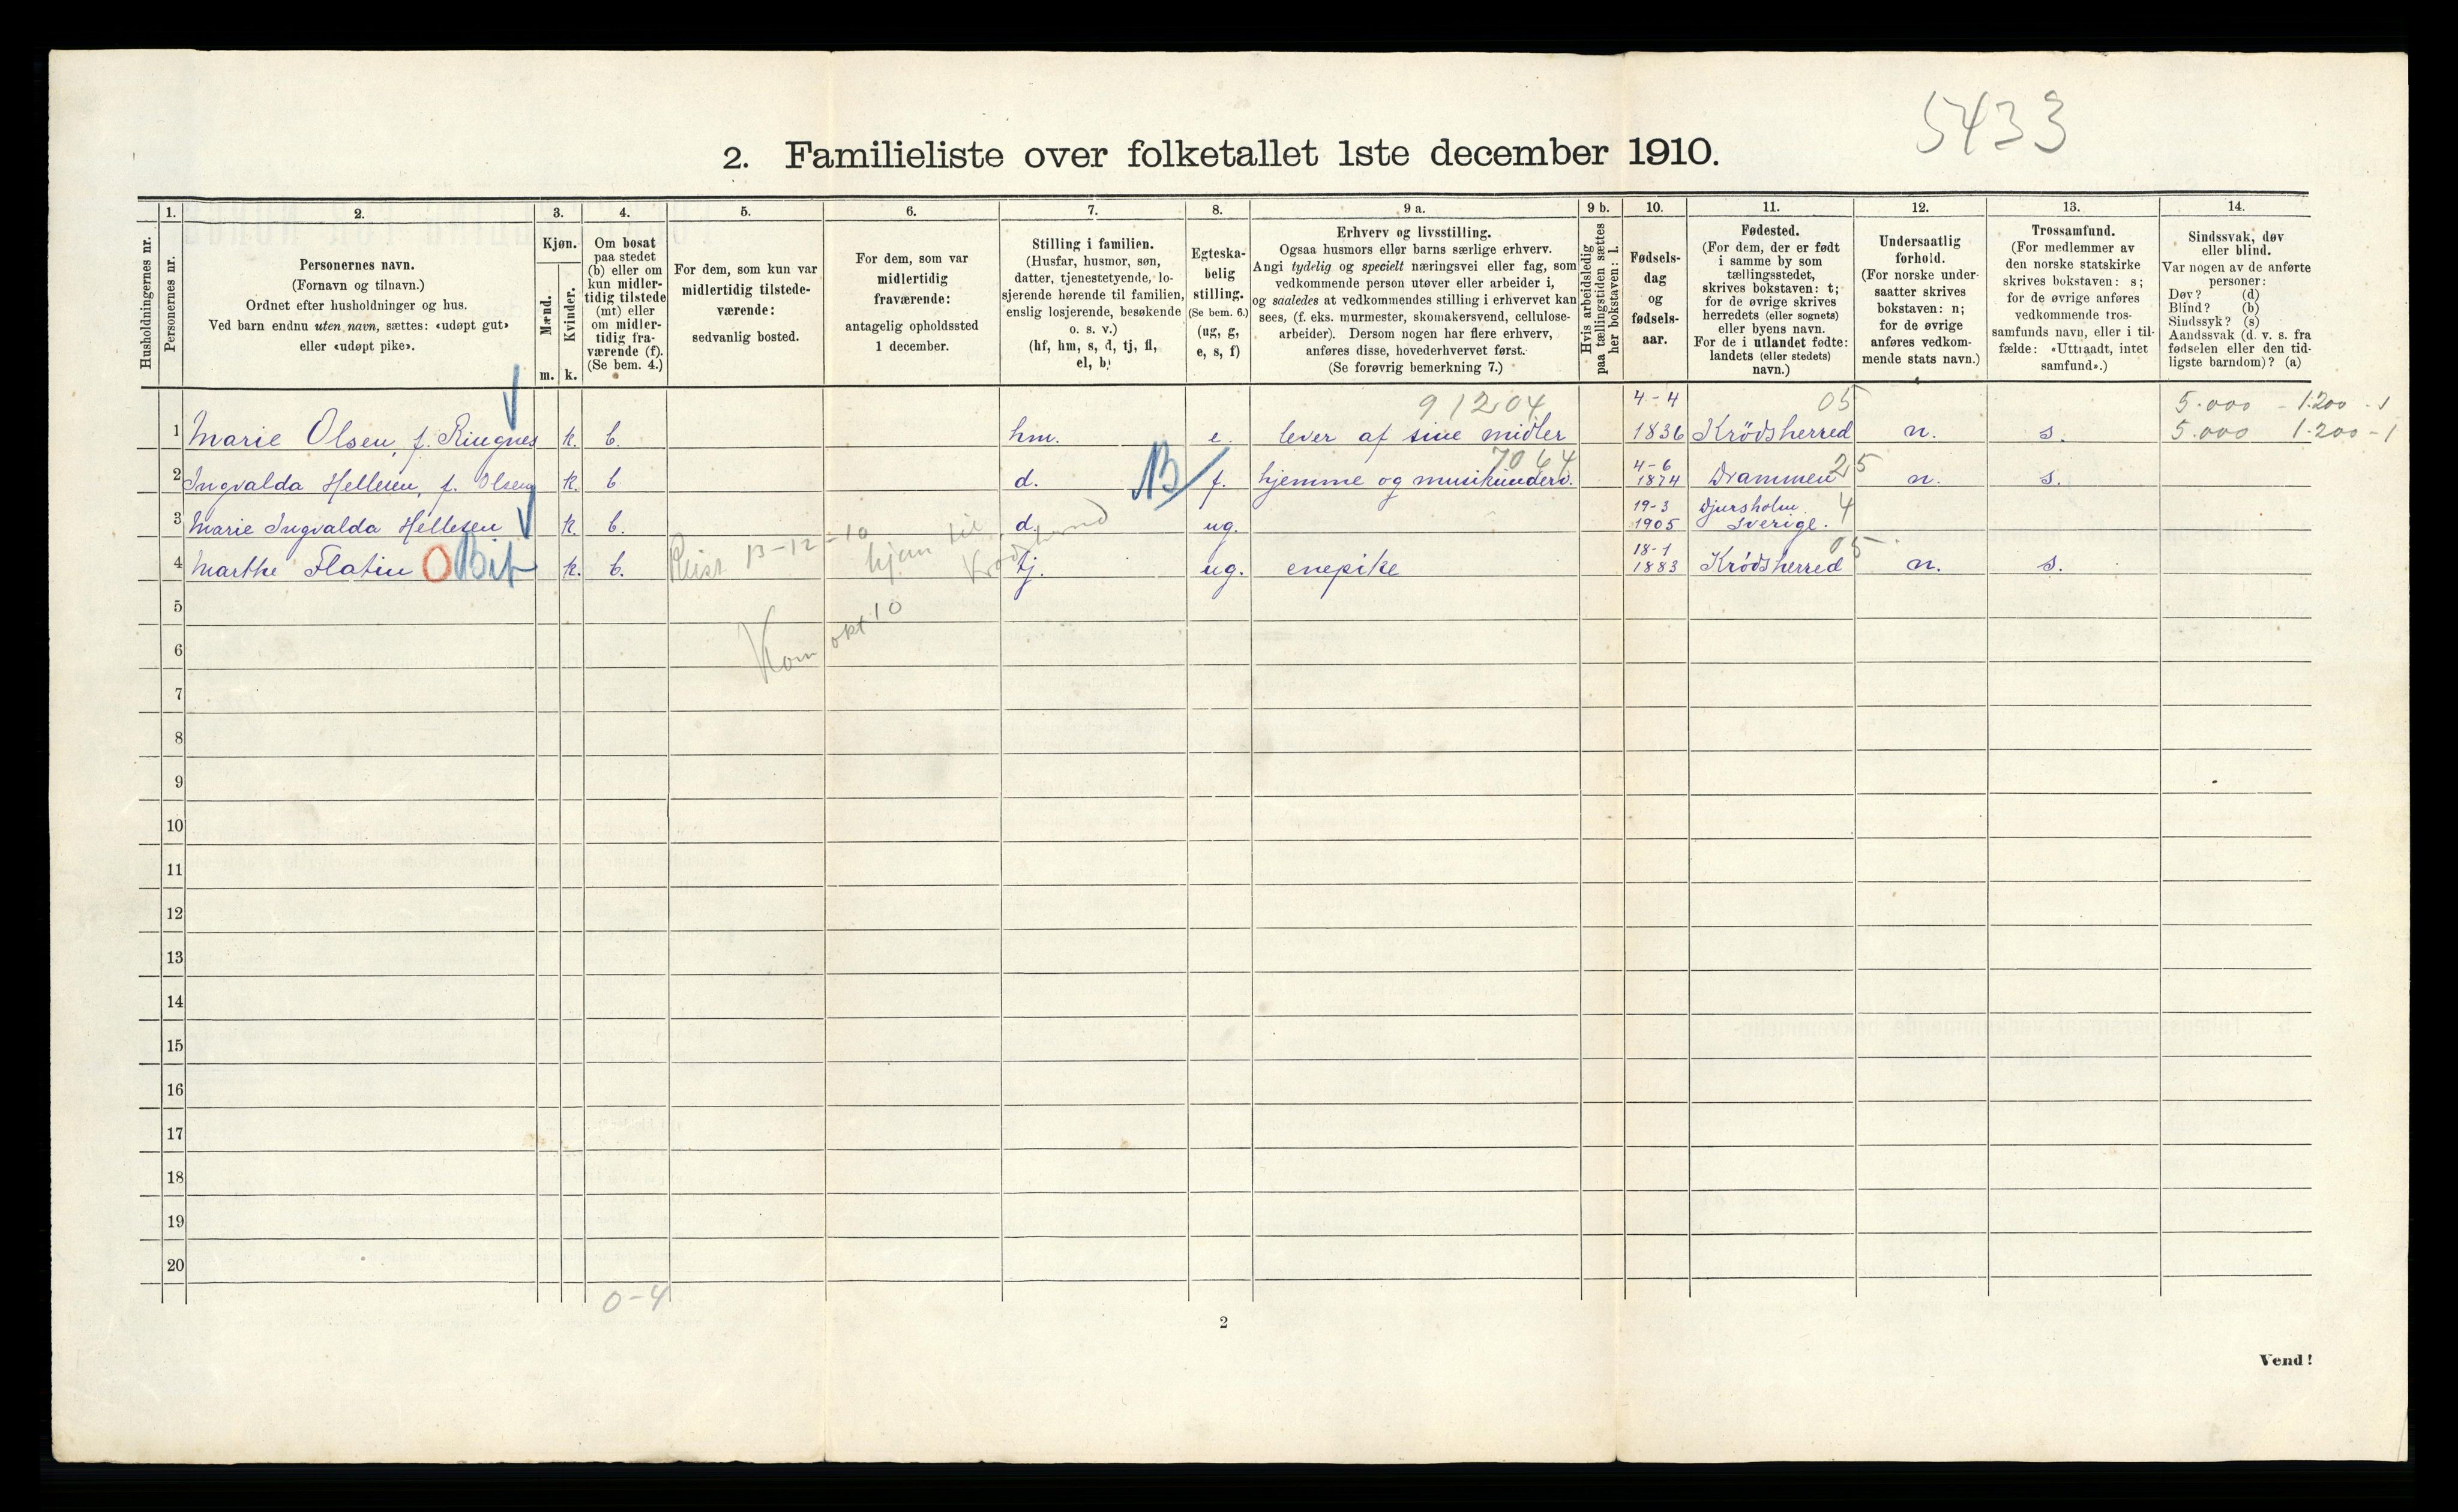 5433
2. Familieliste over folketallet 1ste december 1910.
Husholdningernes nr.
1.
Personernes nr.
2.
Personernes navn.
(Fornavn og tilnavn.)
Ordnet efter husholdninger og hus.
Ved barn endnu uten navn, sættes: «udøpt gut»
eller «udøpt pike».
3.
Kjøn.
Mænd.
Kvinder.
m. k.
4.
Om bosat
paa stedet
(b) eller om
kun midler-
tidig tilstede
(mt) eller
om midler-
tidig fra-
værende (f).
(Se bem. 4.)
5.
For dem, som kun var
midlertidig tilstede-
værende:
sedvanlig bosted.
6.
For dem, som var
midlertidig
fraværende:
antagelig opholdssted
1 december.
7.
Stilling i familien.
(Husfar, husmor, søn,
datter, tjenestetyende, lo-
sjerende hørende til familien,
enslig losjerende, besøkende
o. s. v.)
(hf, hm, s, d, tj, fl,
el, b)
8.
Egteska-
belig
stilling.
(Se bem. 6.)
(ug, g,
e, s, f)
9 a.
Erhverv og livsstilling.
Ogsaa husmors eller barns særlige erhverv.
Angi tydelig og specielt næringsvei eller fag, som
vedkommende person utøver eller arbeider i,
og saaledes at vedkommendes stilling i erhvervet kan
sees, (f. eks. murmester, skomakersvend, cellulose-
arbeider). Dersom nogen har flere erhverv,
anføres disse, hovederhvervet først.
(Se forøvrig bemerkning 7.)
9 b.
Hvis arbeidsledig
paa tællingstiden sættes
her bokstaven: l.
10.
Fødsels-
dag
og
fødsels-
aar.
11.
Fødested.
(For dem, der er født
i samme by som
tællingsstedet,
skrives bokstaven: t;
for de øvrige skrives
herredets (eller sognets)
eller byens navn.
For de i utlandet fødte:
landets (eller stedets)
navn.)
12.
Undersaatlig
forhold.
(For norske under-
saatter skrives
bokstaven: n;
for de øvrige
anføres vedkom-
mende stats navn.)
13.
Trossamfund.
(For medlemmer av
den norske statskirke
skrives bokstaven: s;
for de øvrige anføres
vedkommende tros-
samfunds navn, eller i til-
fælde: «Uttraadt, intet
samfund».)
14.
Sindssvak, døv
eller blind.
Var nogen av de anførte
personer:
Døv? (d)
Blind? (b)
Sindssyk? (s)
Aandssvak (d. v. s. fra
fødselen eller den tid-
ligste barndom)? (a)
91204 4-4 05 5.000 - 1.200 - 1
1 Marie Olsen, f. Ringnes k. b. hm. e. lever af sine midler 1836 Krödsherred n. s. 5.000 1.200 - 1
7064 4-6 25
2 Ingvalda Hellesen, f. Olsen k. b d. B f. hjemme og musikunderv. 1874 Drammen n. s.
19-3 Djursholm 4
3 Marie Ingvalda Hellesen k. b. d. ug. 1905 Sverige.
Reist 13-12-10 hjem til 18-1 05
4 Marthe Flatin O Bit k. b. tj. ug. enepike 1883 Krödsherred n. s.
5
Kom okt 10
6
7
8
9
10
11
12
13
14
15
16
17
18
19
20
0-4
2
Vend!